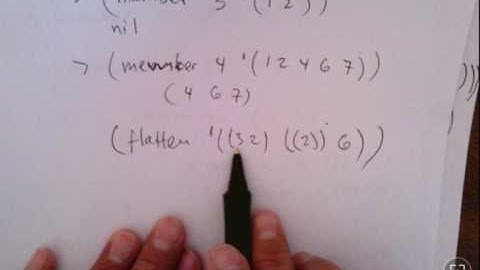 nil
> (member 4 '(1 2 4 6 7))
(4 6 7)
(flatten '((3 2) ((2)) 6))